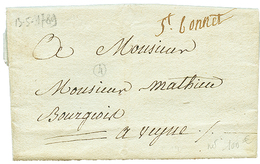 13-5-1769
St. bonnet
A Monsieur
Monsieur mathieu
Bourgiois
a veyne ./.
100 €